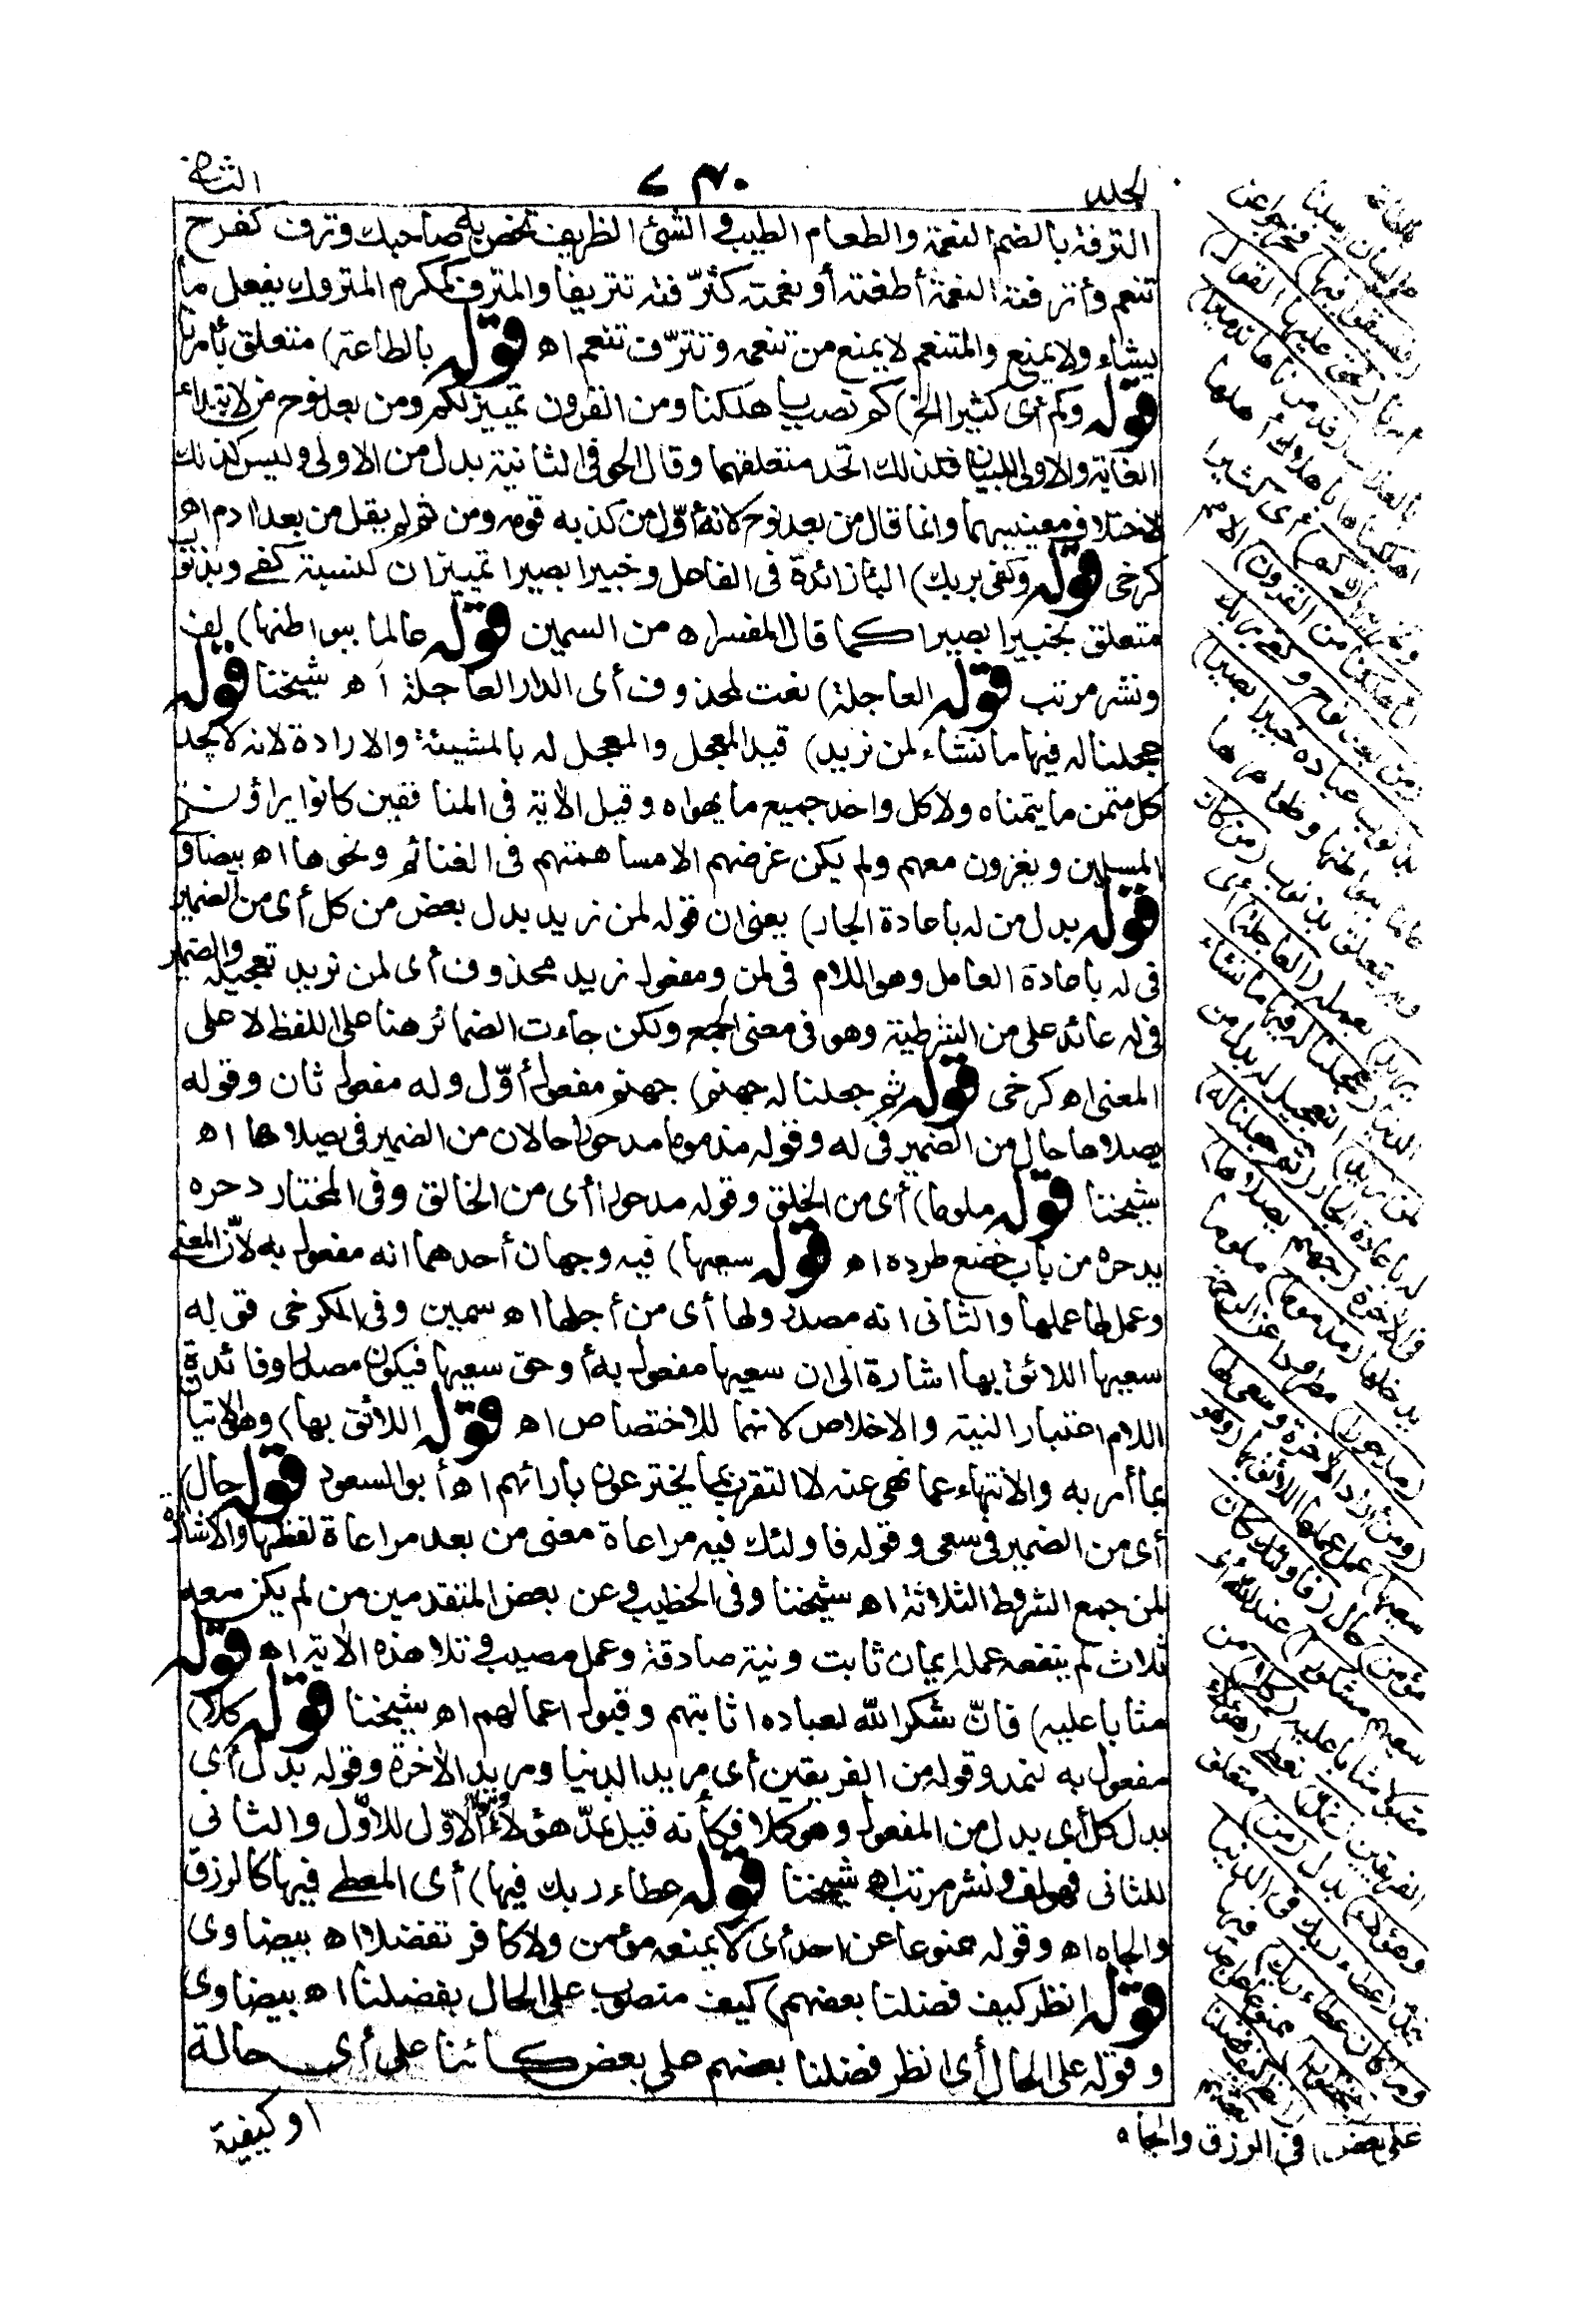 الجلد
٧٣٠
الثاني
الترفة بالضم النعمة والطعام الطيب والشئ الظريف تخص به صاحبك وترف كفرح
تنعم وأترفته النعمة أطغته أو نعمته كترّفته تتريفا والمترف كمكرم المتروك يفعل ما
يشاء ولا يمنع والمتنعم لا يمنع من تنعمه وتترّف تنعم اه قوله بالطاعة) متعلق بأمرنا
قوله وكم أى كثيرا الخ) كم نصب بأهلكنا ومن القرون تمييز لكم ومن بعد نوح من لابتداء
الغاية والاولى للبيان فلذلك اتحد متعلقهما وقال الحوفى الثانية بدل من الاولى وليس كذلك
لاختلاف معنييهما وانما قال من بعد نوح لانه أوّل من كذبه قومه ومن ثم لم يقل من بعد ادم اه
كرخى قوله وكفى بربك) الباء زائدة فى الفاعل وخبيرا بصيرا تمييزان لنسبة كفى وبذنوب
متعلق بخبيرا بصيرا كما قال المفسر اه من السمين قوله عالما ببواطنها) لف
ونشر مرتب قوله العاجلة) نعت لمحذوف أى الدار العاجلة اه شيخنا قوله
عجلنا له فيها ما نشاء لمن نريد) قيد المعجل والمعجل له بالمشيئة والارادة لانه لا يجد
كل متمن ما يتمناه ولا كل واحد جميع ما يهواه وقيل الآية فى المنافقين كانوا يراؤن
المسلمين ويغزون معهم ولم يكن غرضهم الا مساهمتهم فى الغنائم ونحوها اه بيضاوى
قوله بدل من له باعادة الجار) يعنى ان قوله لمن نريد بدل بعض من كل أى من الضمير
فى له باعادة العامل وهو اللام فى لمن ومفعول نريد محذوف أى لمن نريد تعجيله والضمير
فى له عائد على من الشرطية وهو فى معنى الجمع ولكن جاءت الضمائر هنا على اللفظ لا على
المعنى اه كرخى قوله ثم جعلنا له جهنم) جهنم مفعول أوّل وله مفعول ثان وقوله
يصلاها حال من الضمير فى له وقوله مذموما مدحورا حالان من الضمير فى يصلاها اه
شيخنا قوله ملوما) أى من الخلق وقوله مدحورا أى من الخالق وفى المختار دحره
يدحره من باب خضع طرده اه قوله سعيها) فيه وجهان أحدهما انه مفعول به لأن المعنى
وعمل لها عملها والثانى انه مصدر ولها أى من أجلها اه سمين وفى الكرخى قوله
سعيها اللائق بها اشارة الى ان سعيها مفعول به أو حق سعيها فيكون مصدرا وفائدة
اللام اعتبار النية والاخلاص لانها للاختصاص اه قوله اللائق بها) وهو الاتيان
بما أمر به والانتهاء عما نهى عنه لا التقرب بما يخترعون بارائهم اه أبو السعود قوله حال)
أى من الضمير فى سعى وقوله فاولئك فيه مراعاة معنى من بعد مراعاة لفظها والاشارة
لمن جمع الشروط الثلاثة اه شيخنا وفى الخطيب وعن بعض المتقدمين من لم يكن معه
ثلاث لم ينفعه عمله ايمان ثابت ونية صادقة وعمل مصيب وتلا هذه الآية اه قوله
مثابا عليه) فانّ شكر الله لعباده اثابتهم وقبول اعمالهم اه شيخنا قوله كلا)
مفعول به لنمد وقوله من الفريقين أى مريد الدنيا ومريد الآخرة وقوله بدل أى
بدل كل أى بدل من المفعول وهو كلا فكأنه قيل نمدّ هؤلاء وهؤلاء الاوّل للاوّل والثانى
للثانى فهو لف ونشر مرتب اه شيخنا قوله عطاء ربك فيها) أى المعطى فيها كالرزق
والجاه اه وقوله ممنوعا عن احد أى لا يمنعه مؤمن ولا كافر تفضلا اه بيضاوى
قوله انظر كيف فضلنا بعضهم) كيف منصوب على الحال بفضلنا اه بيضاوى
وقوله على الحال أى انظر فضلنا بعضهم على بعض كائنا على أى حالة
او كيفية
على لسان رسلنا
(ففسقوا فيها) فخرجوا عن
أمرنا (فحق عليها القول)
بالعذاب (فدمرناها تدميرا)
أهلكناها باهلاك أهلها
وتخريبها (وكم) أى كثيرا
(أهلكنا من القرون) الامم
(من بعد نوح وكفى بربك
بذنوب عباده خبيرا بصيرا)
عالما ببواطنها وظواهرها
وبه يتعلق بذنوب (من كان
يريد) بعمله (العاجلة) أى
الدنيا (عجلنا له فيها ما نشاء
لمن نريد) التعجيل له بدل من
له باعادة الجار (ثم جعلنا له)
فى الآخرة (جهنم يصلاها)
يدخلها (مذموما) ملوما
(مدحورا) مطرودا عن الرحمة
(ومن أراد الآخرة وسعى لها
سعيها) عمل عملها اللائق بها (وهو
مؤمن) حال (فاولئك كان
سعيهم مشكورا) عند الله أى
مقبولا مثابا عليه (كلا) من
الفريقين (نمد) نعطى (هؤلاء
وهؤلاء) بدل (من) متعلق
بنمد (عطاء ربك) فى الدنيا
(وما كان عطاء ربك) فيها
(محظورا) ممنوعا عن احد
(انظر كيف فضلنا بعضهم
على بعض) فى الرزق والجاه